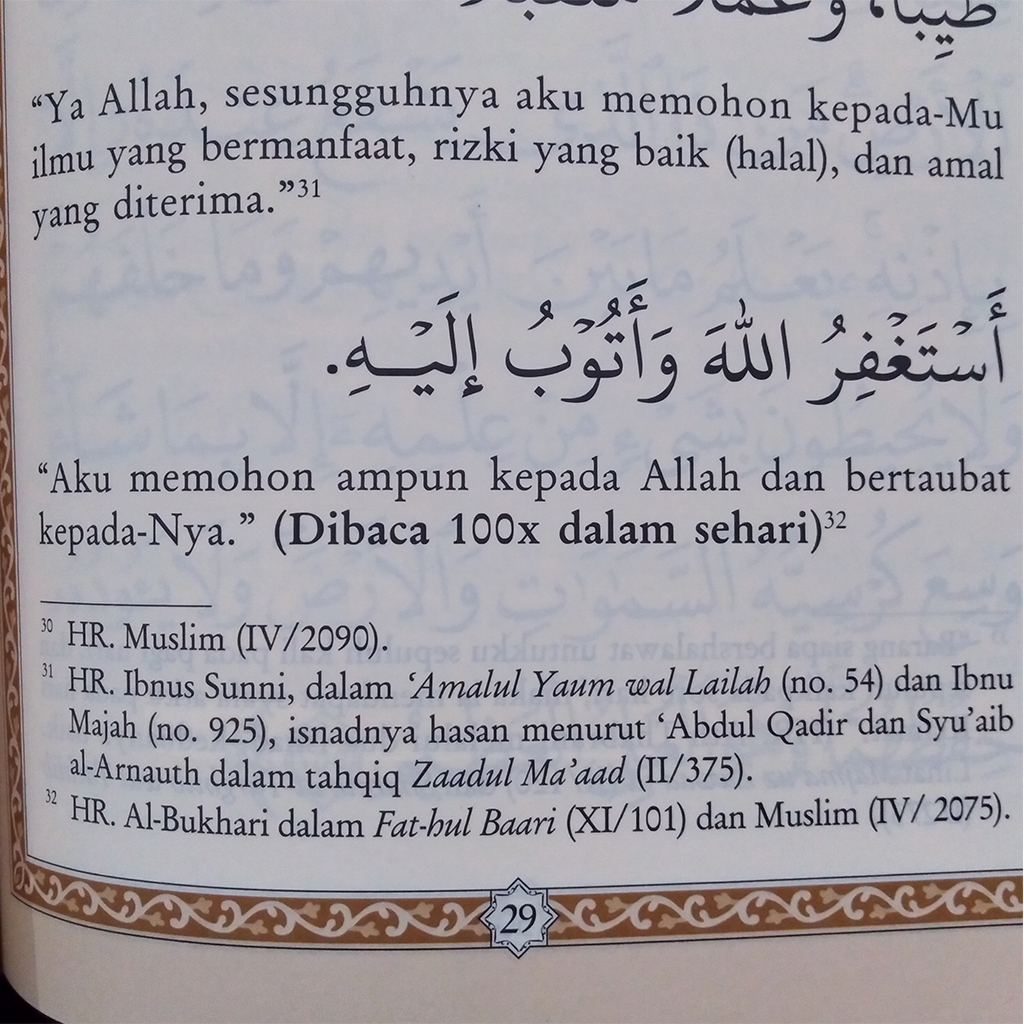 طَيِّبًا، وَعَمَلًا مُتَقَبَّلًا
“Ya Allah, sesungguhnya aku memohon kepada-Mu
ilmu yang bermanfaat, rizki yang baik (halal), dan amal
yang diterima.”31
أَسْتَغْفِرُ اللهَ وَأَتُوْبُ إِلَيْهِ.
“Aku memohon ampun kepada Allah dan bertaubat
kepada-Nya.” (Dibaca 100x dalam sehari)32
30 HR. Muslim (IV/2090).
31 HR. Ibnus Sunni, dalam ‘Amalul Yaum wal Lailah (no. 54) dan Ibnu
Majah (no. 925), isnadnya hasan menurut ‘Abdul Qadir dan Syu’aib
al-Arnauth dalam tahqiq Zaadul Ma’aad (II/375).
32 HR. Al-Bukhari dalam Fat-hul Baari (XI/101) dan Muslim (IV/ 2075).
29